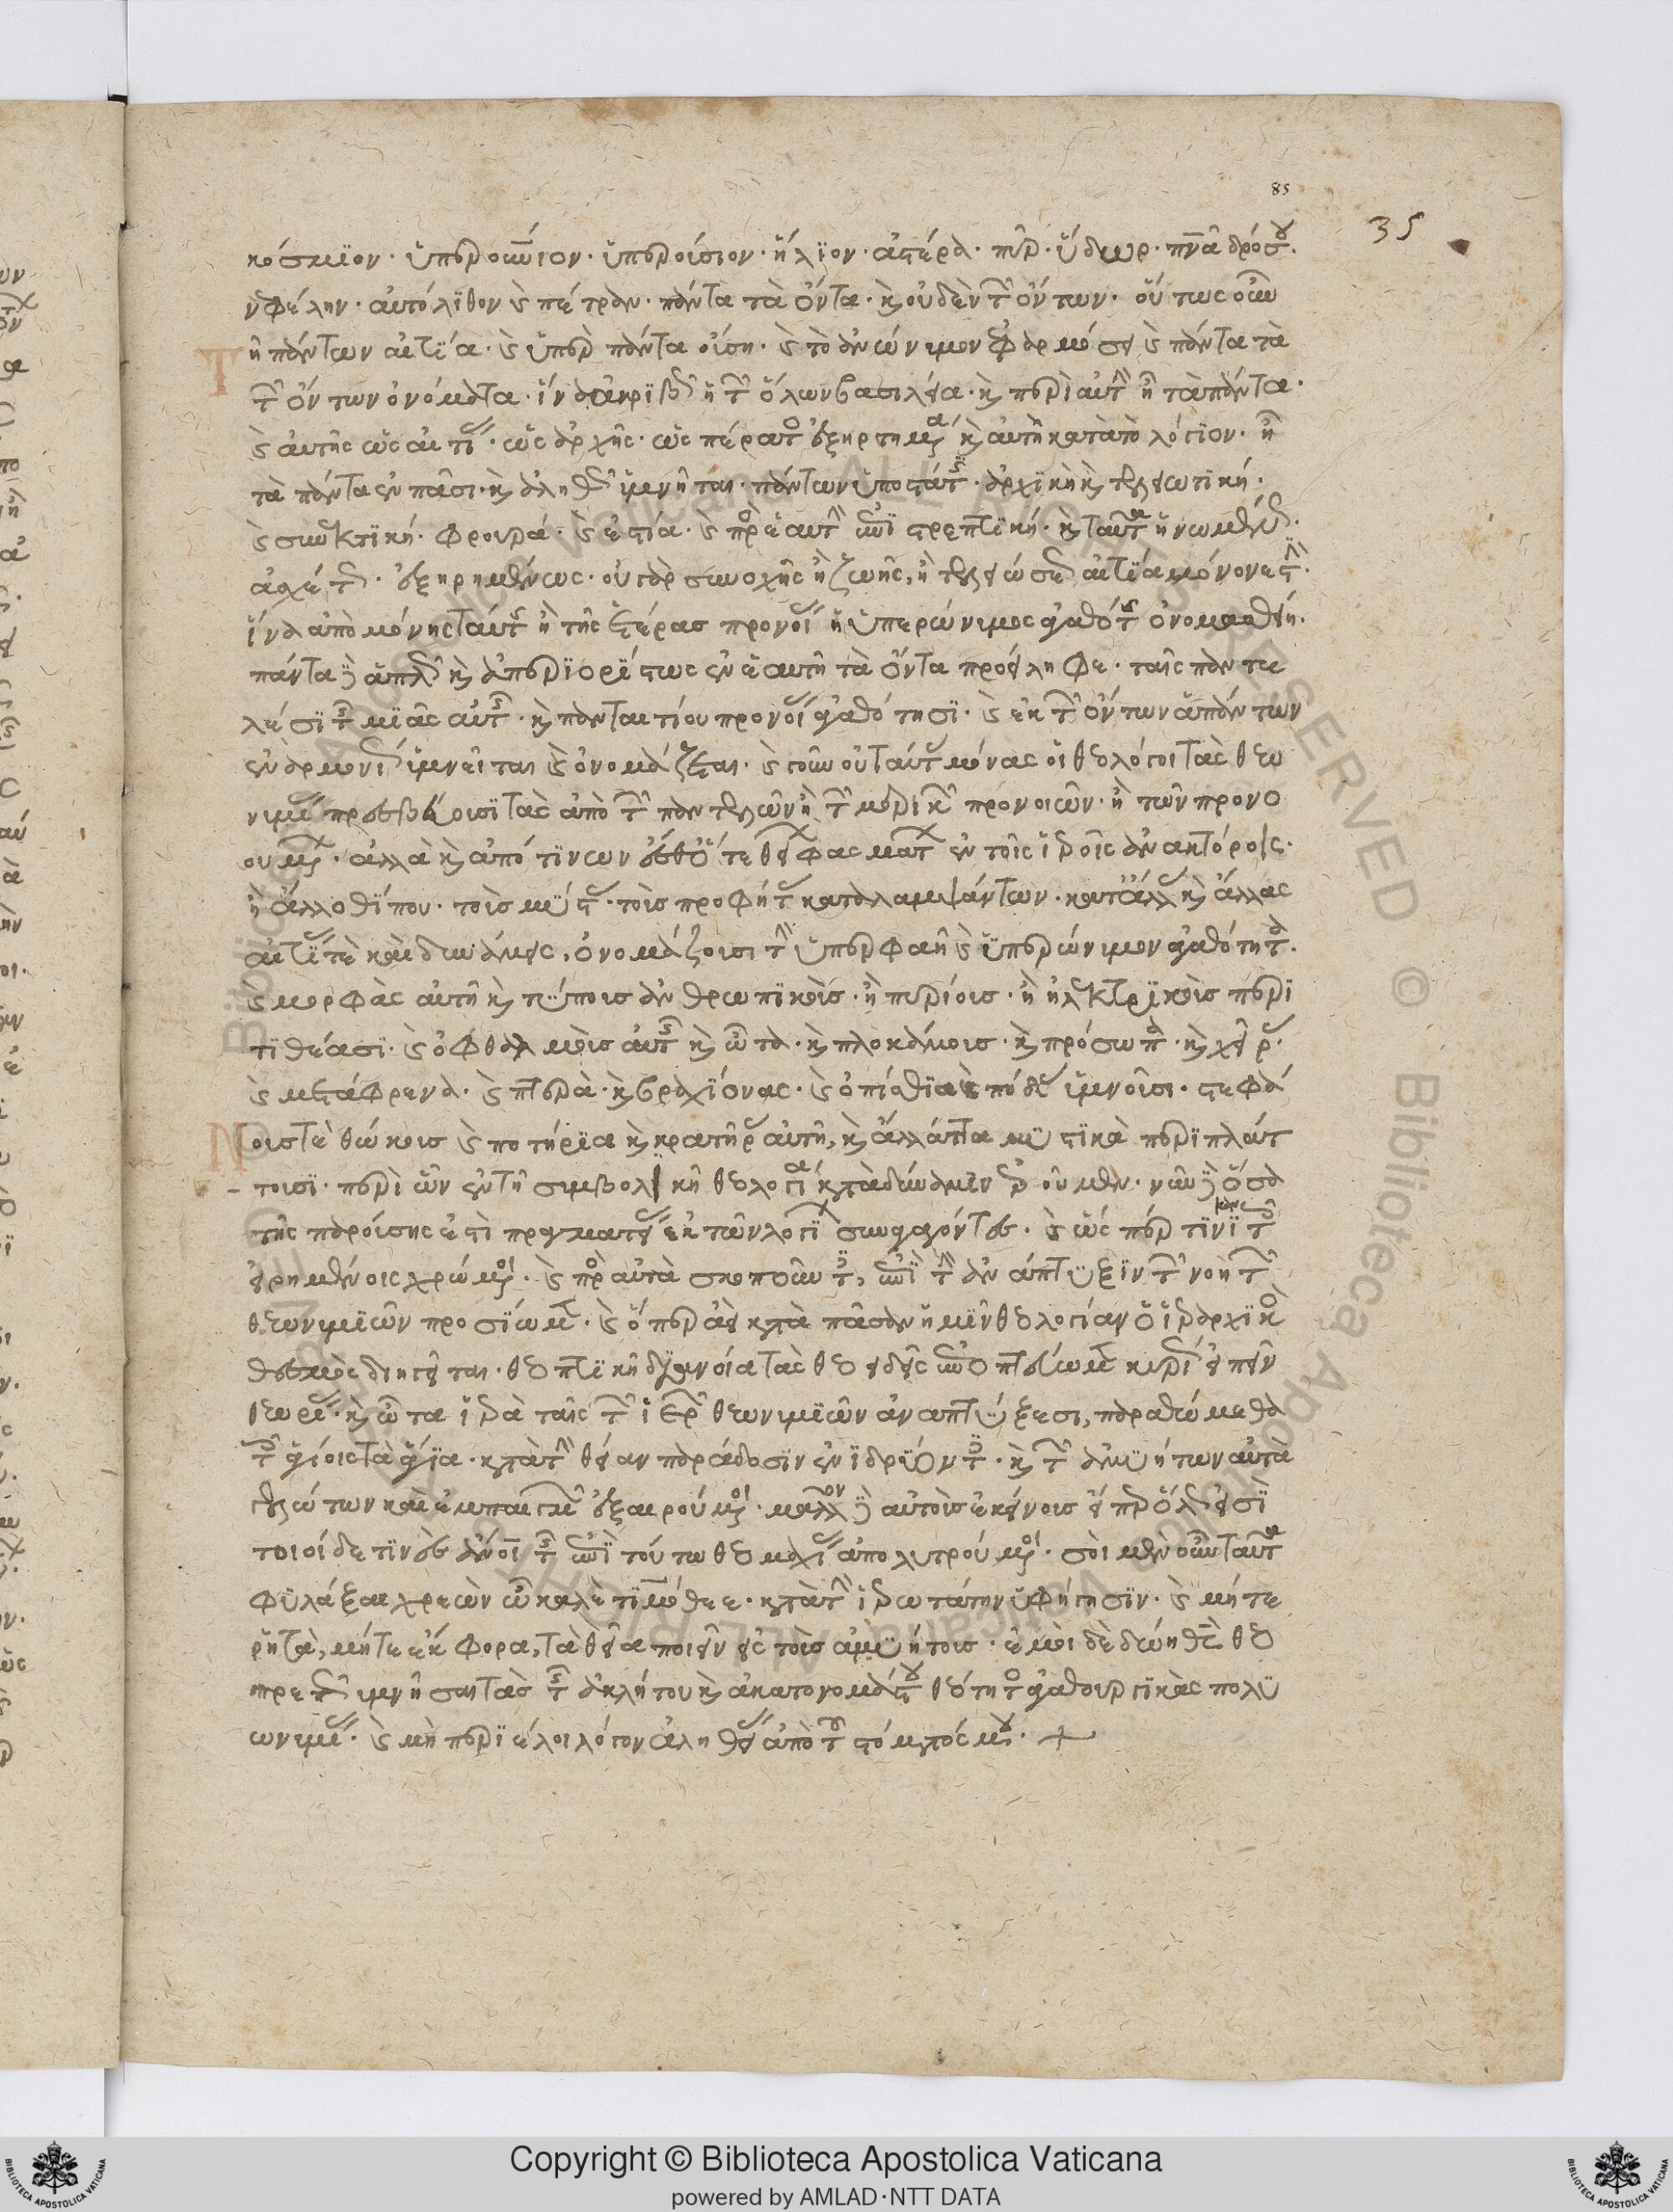 κόσμιον· ὑπερουράνιον· ὑπερούσιον· ἥλιον· ἀστέρα· πῦρ· ὕδωρ· πνεῦμα δρόσον·
νεφέλην· αὐτόλιθον καὶ πέτραν· πάντα τὰ ὄντα· καὶ οὐδὲν τῶν ὄντων· οὕτως οὖν
τῇ πάντων αἰτίᾳ· καὶ ὑπὲρ πάντα οὔσῃ· καὶ τὸ ἀνώνυμον ἐφαρμόσει καὶ πάντα τὰ
τῶν ὄντων ὀνόματα· ἵνα ἀκριβῶς ᾖ τῶν ὅλων βασιλεία· καὶ περὶ αὐτὴν ᾖ τὰ πάντα·
καὶ αὐτῆς ὡς αἰτίας· ὡς ἀρχῆς· ὡς πέρατος ἐξηρτημένα· καὶ αὐτὴ κατὰ τὸ λόγιον· ᾖ
τὰ πάντα ἐν πᾶσι· καὶ ἀληθῶς ὑμνῆται· πάντων ὑποστάτις· ἀρχικὴ καὶ τελειωτική·
καὶ συνεκτική· φρουρά· καὶ ἑστία· καὶ πρὸς ἑαυτὴν ἐπιστρεπτική· καὶ ταῦτα ἡνωμένως·
ἀσχέτως· ἐξηρημένως· οὐ γὰρ συνοχῆς ἢ ζωῆς, ἢ τελειώσεως αἰτία μόνον ἐστὶν·
ἵνα ἀπὸ μόνης ταύτης ἢ τῆς ἑτέρας προνοίας ἡ ὑπερώνυμος ἀγαθότης ὀνομασθείη·
πάντα δὲ ἁπλῶς καὶ ἀπεριορίστως ἐν ἑαυτῇ τὰ ὄντα προείληφε· ταῖς παντε
λέσι τῆς μιᾶς αὐτῆς· καὶ πανταιτίου προνοίας ἀγαθότησι· καὶ ἐκ τῶν ὄντων ἁπάντων
ἐναρμονίως ὑμνεῖται καὶ ὀνομάζεται· καὶ γοῦν οὐ ταύτας μόνας οἱ θεολόγοι τὰς θεω
νυμίας πρεσβεύουσι τὰς ἀπὸ τῶν παντελῶν ἢ τῶν μερικῶν προνοιῶν· ἢ τῶν προνο
ουμένων· ἀλλὰ καὶ ἀπό τινων ἔσθ' ὅτε θείων φασμάτων ἐν τοῖς ἱεροῖς ἀνακτόροις·
ἢ ἄλλοθί που· τοὺς μύστας· τοὺς προφήτας καταλαμψάντων· κατ' ἄλλας καὶ ἄλλας
αἰτίας τὲ καὶ δυνάμεις, ὀνομάζουσι τὴν ὑπερφαῆ καὶ ὑπερώνυμον ἀγαθότητα·
καὶ μορφὰς αὐτῇ καὶ τύπους ἀνθρωπικοὺς· ἢ πυρίους· ἢ ἠλεκτρικοὺς περι
τιθέασι· καὶ ὀφθαλμοὺς αὐτῆς καὶ ὦτα· καὶ πλοκάμους· καὶ πρόσωπα· καὶ χεῖρας·
καὶ μετάφρενα· καὶ πτερὰ· καὶ βραχίονας· καὶ ὀπίσθια καὶ πόδας ὑμνοῦσι· στεφά
νους τὲ θώκους καὶ ποτήρια καὶ κρατῆρας αὐτῇ, καὶ ἄλλ' ἄττα μυστικὰ περιπλάτ
τουσι· περὶ ὧν ἐν τῇ συμβολικῇ θεολογίᾳ κατὰ δύναμιν ἐροῦμεν· νῦν δὲ ὅσα
τῆς παρούσης ἐστὶ πραγματείας ἐκ τῶν λογίων συναγαγόντες· καὶ ὥς περ τινὶ κανόνι τοῖς
εἰρημένοις χρώμενοι· καὶ πρὸς αὐτὰ σκοποῦντες, ἐπὶ τὴν ἀνάπτυξιν τῶν νοητῶν
θεωνυμιῶν προσίωμεν· καὶ ὅπερ ἀεὶ κατὰ πᾶσαν ἡμῖν θεολογίαν ὁ ἱεραρχικὸς
θεσμὸς διηγεῖται· θεοπτικῇ διανοίᾳ τὰς θεοειδεῖς ἐποπτεύωμεν κυρίως εἰπεῖν
θεωρίας· καὶ ὦτα ἱερὰ ταῖς τῶν ἱερῶν θεωνυμιῶν ἀναπτύξεσι, παραθώμεθα
τοῖς ἁγίοις τὰ ἅγια· κατὰ τὴν θείαν παράδοσιν ἐνιδρύοντες· καὶ τῶν ἀμυήτων αὐτὰ
γελώτων καὶ ἐμπαιγμῶν ἐξαιρούμενοι· μᾶλλον δὲ αὐτοὺς ἐκείνους εἴπερ ὅλως εἰσὶ
τοιοίδε τινὲς ἄνθρωποι τῆς ἐπὶ τούτῳ θεομαχίας ἀπολυτρούμενοι· σοὶ μὲν οὖν ταῦτα
φυλάξαι χρεὼν ὦ καλὲ τιμόθεε· κατὰ τὴν ἱερωτάτην ὑφήγησιν· καὶ μήτε
ῥητὰ, μήτε ἔκφορα, τὰ θεῖα ποιεῖν εἰς τοὺς ἀμυήτους· ἐμοὶ δὲ δῴη θεὸς θεο
πρεπῶς ὑμνῆσαι τὰς τῆς ἀκλήτου καὶ ἀκατονομάστου θεότητος ἀγαθουργικὰς πολυ
ωνυμίας· καὶ μὴ περιέλοι λόγον ἀληθείας ἀπὸ τοῦ στόματός μου· +